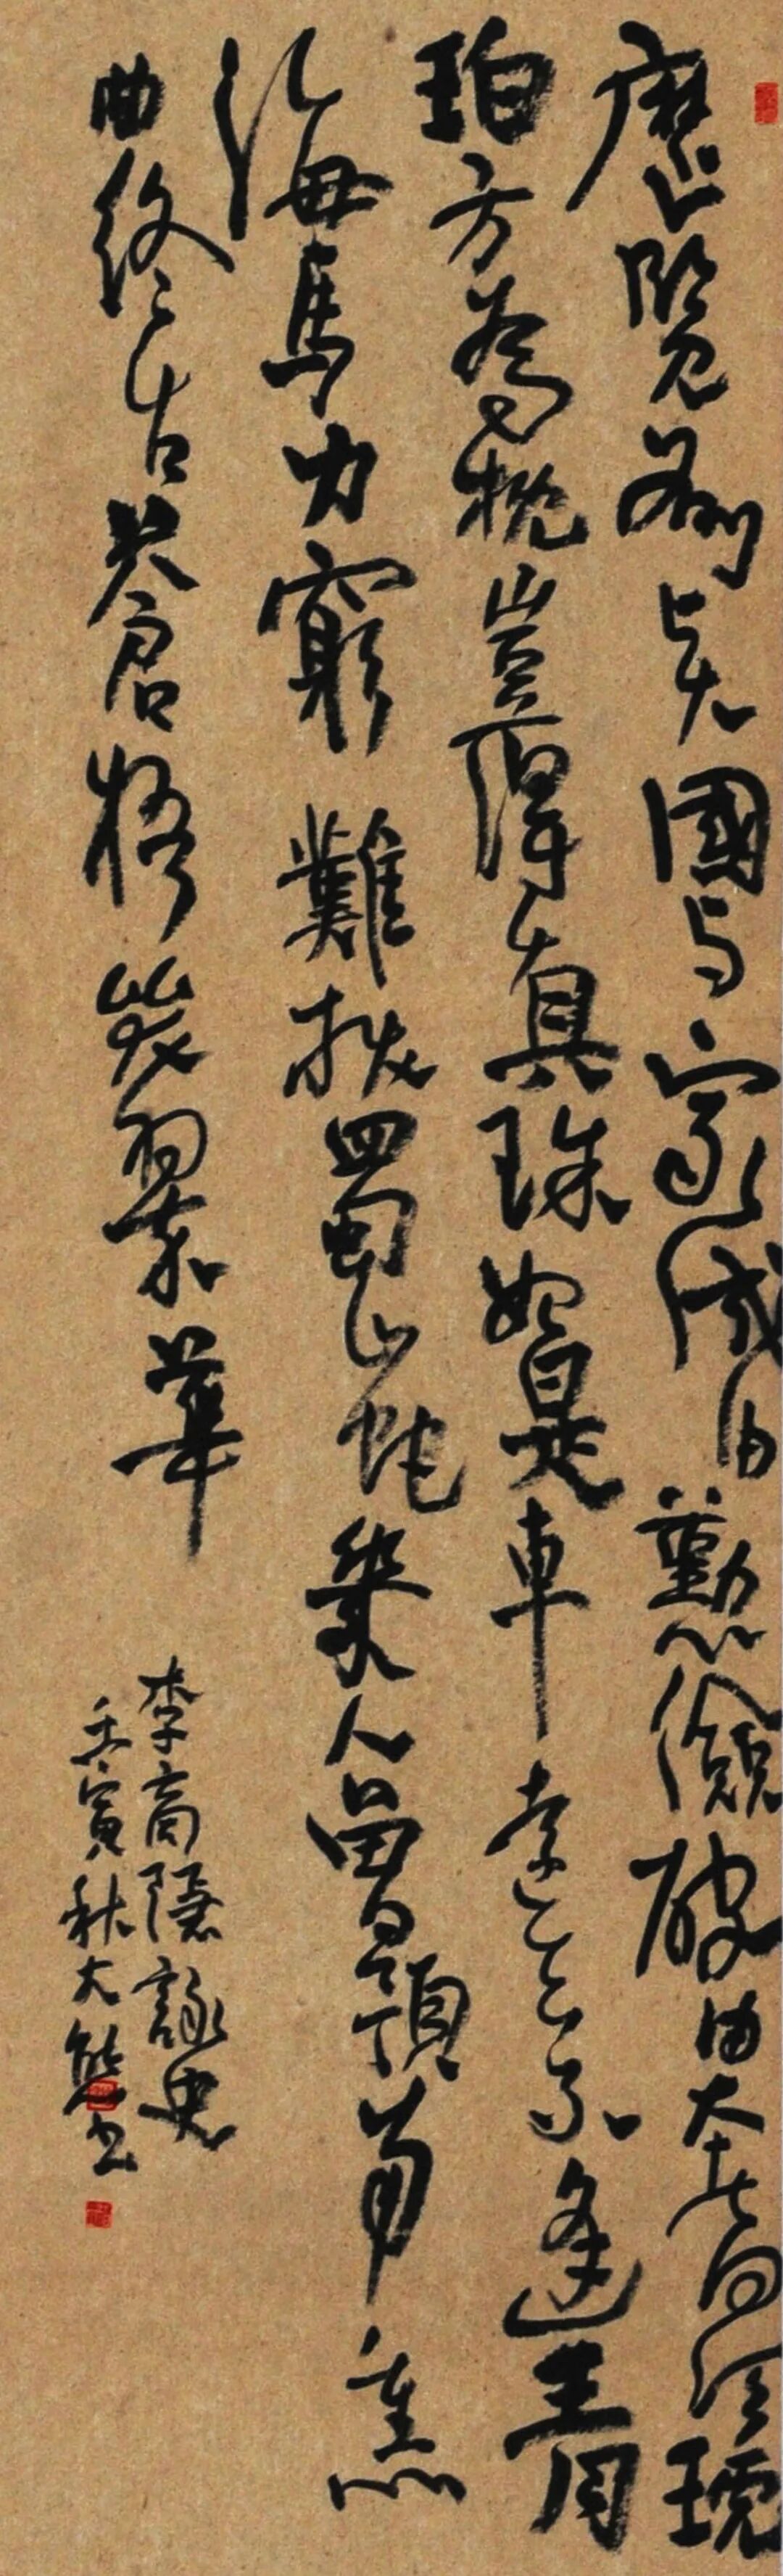 歷覽前贤國与家成由懃儉破由奢何须琥
珀方為枕豈得真珠始是車運去不逢青
海馬力窮難拔蜀山蛇幾人曾預南熏
曲終古蒼梧哭翠華
李商隱詠史
壬寅秋大熊书